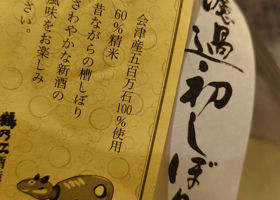 濾過・初しぼり
会津産五百万石100%使用
60%精米
昔ながらの槽しぼり
さわやかな新酒の
風味をお楽しみ
さい。
鶴乃江酒造